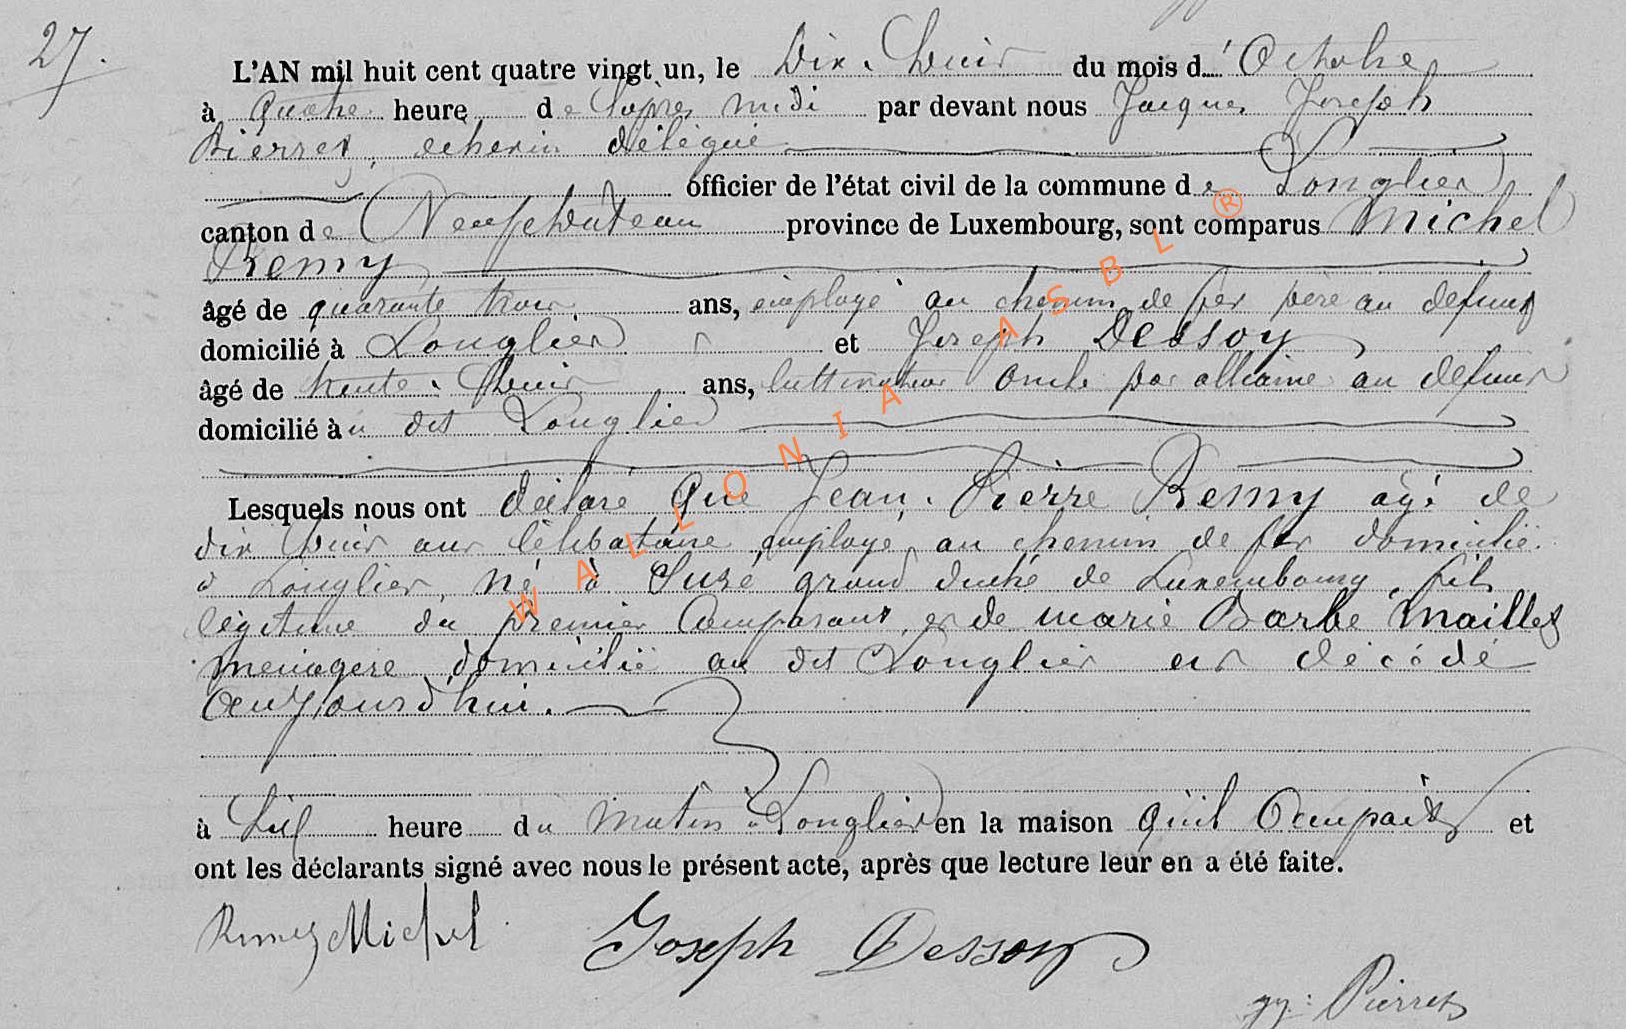 27.
L'AN mil huit cent quatre vingt un, le Dix-huit du mois d' Octobre
à quatre heure de l'après midi par devant nous Jacques Joseph
Pierret, echevin délégué
officier de l'état civil de la commune de Longlier
canton de Neufchâteau province de Luxembourg, sont comparus Michel
Remy
âgé de quarante trois ans, employé au chemin de fer père au defunt
domicilié à Longlier et Joseph Dessoy
âgé de trente-huit ans, cultivateur oncle par alliance au defunt
domicilié au dit Longlier
Lesquels nous ont déclaré que Jean-Pierre Remy agé de
dix huit ans célibataire employé au chemin de fer domicilié
à Longlier, né à grand duché de Luxembourg, fils
légitime du premier Comparant, et de marie Barbe Maillet
menagère domicilié au dit Longlier est décédé
aujourd'hui.
à heure du matin à Longlier en la maison qu'il Occupait et
ont les déclarants signé avec nous le présent acte, après que lecture leur en a été faite.
Remy Michel Joseph Dessoy
Pierret
WALLONIA ASBL ®